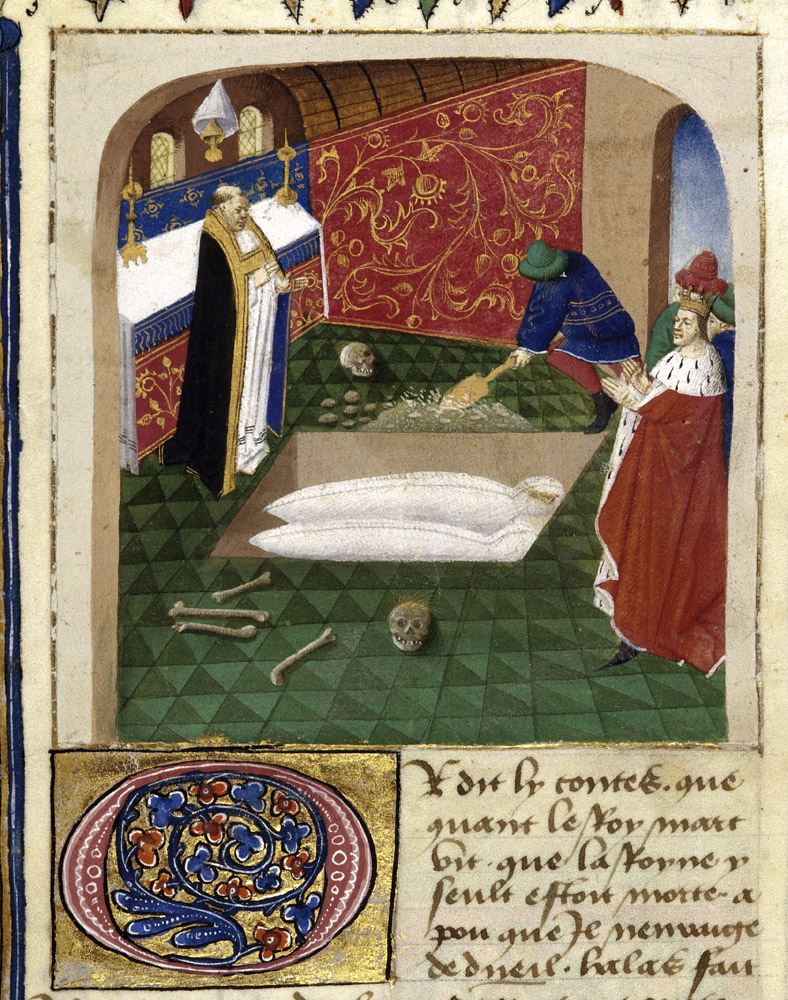 Or dit ly contes. que
quant le Roy marc
vit. que la Royne y
seult estoit morte. a
pou que Il nenraige
de dueil. helas fait